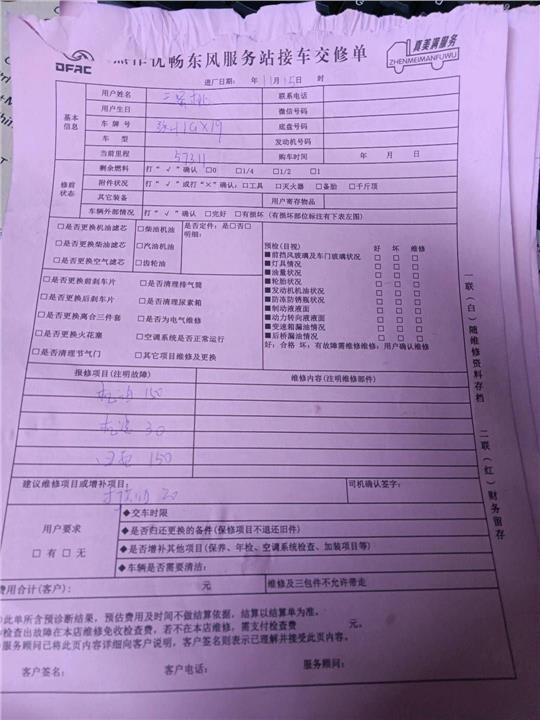 DFAC
优畅东风服务站接车交修单
真美满服务
ZHENMEIMANFUWU
进厂日期： 年 11月 15日 时
基本信息
用户姓名
联系电话
用户生日
微信号码
车牌号
底盘号码
车 型
发动机号码
当前里程 57311
购车时间 年 月 日
修前状态
剩余燃料 打“√”确认 □0 □1/4 □1/2 □1
附件状况 打“√”或打“×”确认：□工具 □灭火器 □备胎 □千斤顶
其它装备
用户寄存物品
车辆外部情况 打“√”确认 □完好 □有损坏（有损坏部位标注有下表左图）
□是否更换机油滤芯 □柴油机油 是否定件：是□否□
□是否更换柴油滤芯 □汽油机油 明细：
□是否更换空气滤芯 □齿轮油
□是否更换前刹车片 □是否清理排气筒
□是否更换后刹车片 □是否清理尿素箱
□是否更换离合三件套 □是否为电气维修
□是否更换火花塞 □空调系统是否正常运行
□是否清理节气门 □其它项目维修及更换
预检(目视) 好 坏 维修
■前挡风玻璃及车门玻璃状况 □ □ □
■灯具情况 □ □ □
■油量状况 □ □ □
■轮胎状况 □ □ □
■发动机机油状况 □ □ □
■防冻防锈瓶状况 □ □ □
■制动液液面 □ □ □
■动力转向液液面 □ □ □
■变速箱漏油情况 □ □ □
■后桥漏油情况 □ □ □
好：合格 坏：有故障需维修维修，用户确认维修
报修项目(注明故障)
维修内容(注明维修部件)
机油 150
机滤 30
150
建议维修项目或增补项目：
20
司机确认签字：
用户要求
□有 □无
◆交车时限
◆是否归还更换的备件(保修项目不退还旧件)
◆是否增补其他项目(保养、年检、空调系统检查、加装项目等)
◆车辆是否需要清洁：
费用合计(客户)： 元
维修及三包件不允许带走
此单所含预诊断结果，预估费用及时间不做结算依据，结算以结算单为准。
检查出故障在本店维修免收检查费，若不在本店维修，需支付检查费 元。
服务顾问已将此页内容详细向客户说明，客户签名则表示已理解并接受此页内容。
客户签名： 客户电话： 服务顾问：
一联(白)随维修资料存档
二联(红)财务留存